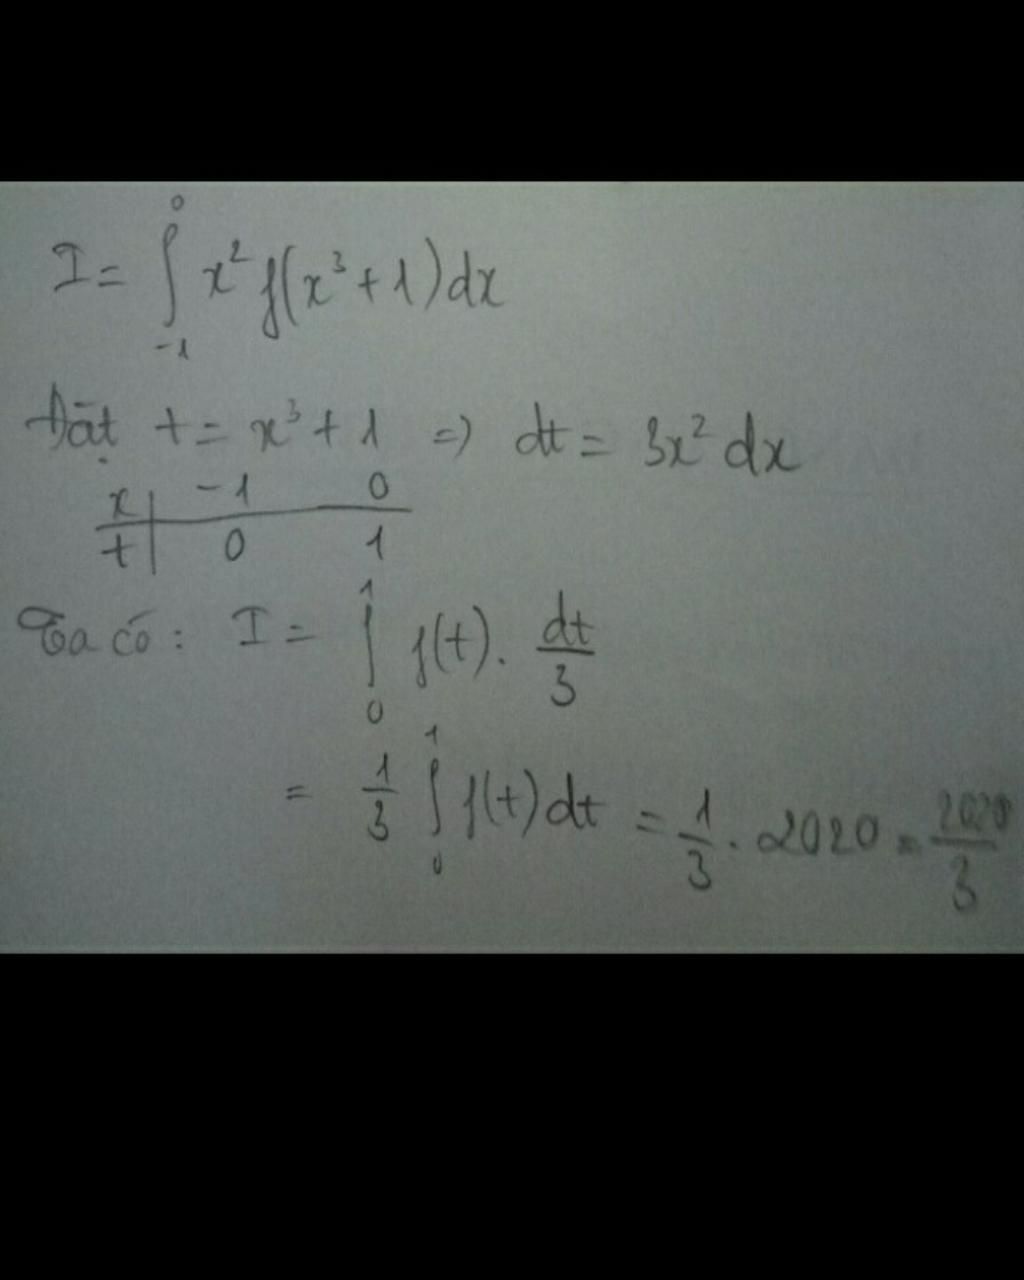 I = ∫_{-1}^{0} x² f(x³ + 1) dx
Đặt t = x³ + 1 => dt = 3x² dx
x | -1 0
t | 0 1
Ta có : I = ∫_{0}^{1} f(t) . dt/3
= 1/3 ∫_{0}^{1} f(t) dt = 1/3 . 2020 = 2020/3